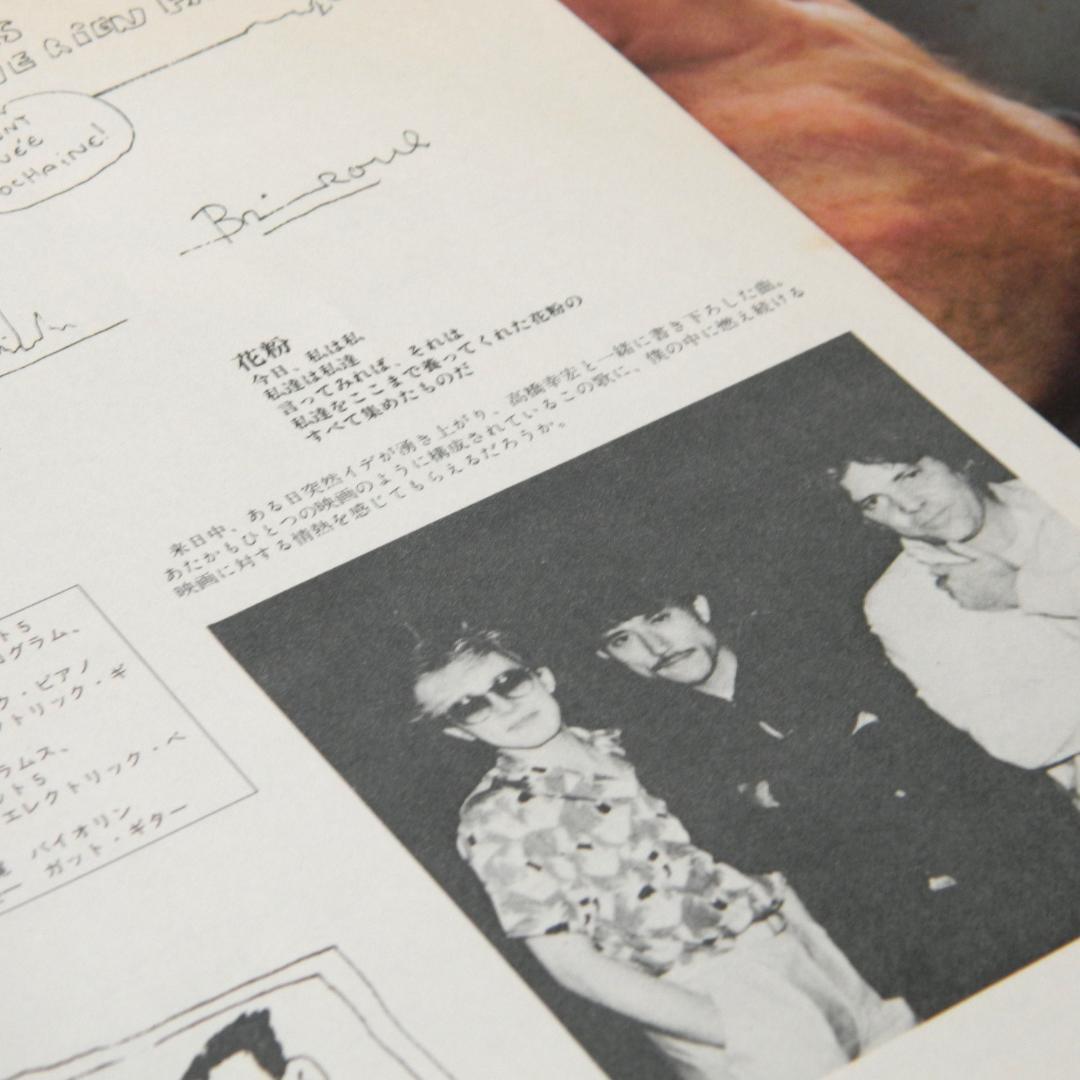 RIEN
OCHAINE!
花粉
今日、私は私
私達は私達
言ってみれば、それは
私達をここまで養ってくれた花粉の
すべて集めたものだ
来日中、ある日突然イデが湧き上がり、高橋幸宏と一緒に書き下ろした曲。
あたかもひとつの映画のように構成されているこの歌に、僕の中に燃え続ける
映画に対する情熱を感じてもらえるだろうか。
ト5
グラム、
ク・ピアノ
トリック・ギ
ラムス、
ト5
エレクトリック・ベ
バイオリン
ガット・ギター